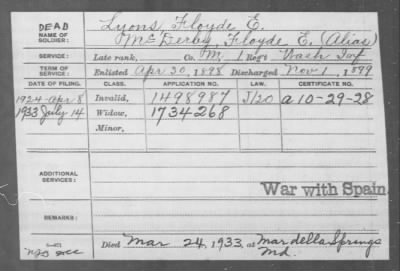 DEAD
NAME OF SOLDIER: Lyons, Floyde E.
McDerby, Floyde E. (Alias)
SERVICE: Late rank, Co. M, 1 Reg't Wash Inf
TERM OF SERVICE: Enlisted Apr 30, 1898 Discharged Nov 1, 1899
DATE OF FILING. CLASS. APPLICATION NO. LAW. CERTIFICATE NO.
1924-Apr 8 Invalid, 1498987 J/20 a 10-29-28
1933 July 14 Widow, 1734268
Minor,
ADDITIONAL SERVICES:
War with Spain.
REMARKS:
Died Mar 24, 1933, at Mardella Springs
Md.